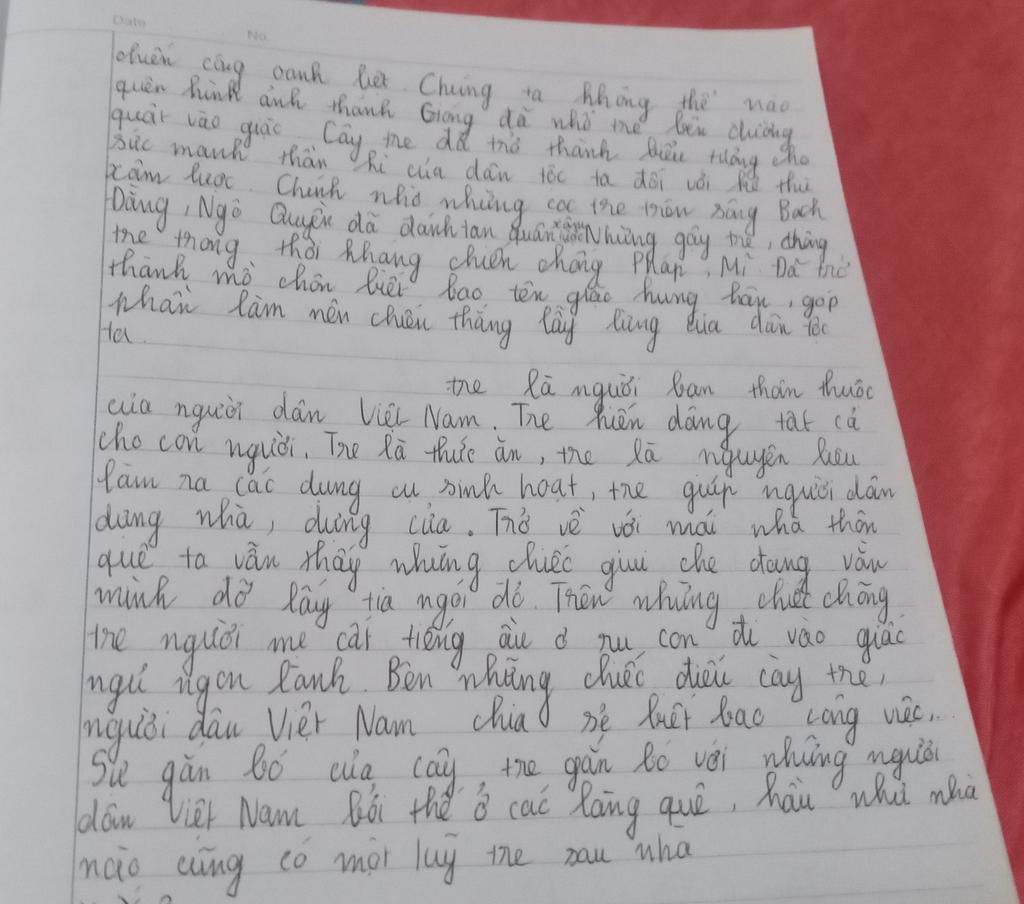 Date No.
chiến công oanh liệt. Chúng ta không thể nào
quên hình ảnh thánh Gióng đã nhổ tre bên đường
quật vào giặc. Cây tre đã trở thành biểu tượng cho
sức mạnh thần kì của dân tộc ta đối với kẻ thù
xâm lược. Chính nhờ những cọc tre trên sông Bạch
Đằng, Ngô Quyền đã đánh tan quân xâm lược Những gậy tre, chông
tre trong thời kháng chiến chống Pháp, Mĩ. Đã trở
thành mồ chôn biết bao tên giặc hung hãn, góp
phần làm nên chiến thắng lẫy lừng của dân tộc
ta.
tre là người bạn thân thuộc
của người dân Việt Nam. Tre hiến dâng tất cả
cho con người. Tre là thức ăn, tre là nguyên liệu
làm ra các dụng cụ sinh hoạt, tre giúp người dân
dựng nhà, dựng cửa. Trở về với mái nhà thôn
quê ta vẫn thấy những chiếc giui che đang vằn
mình đỡ lấy tia ngói đỏ. Trên những chiếc chõng
tre người mẹ cất tiếng ầu ơ ru con đi vào giấc
ngủ ngon lành. Bên những chiếc điếu cày tre,
người dân Việt Nam chia sẻ biết bao công việc,..
Sự gắn bó của cây tre gắn bó với những người
dân Việt Nam bởi thế ở các làng quê, hầu như nhà
nào cũng có một luỹ tre sau nhà